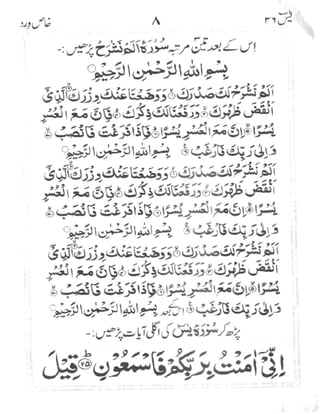 یٰسٓ ۳۶ ۸ خاص ورد
اِس کے بعد تین مرتبہ سُوْرَۃ اَلَمْ نَشْرَحْ پڑھیں:۔
بِسْمِ اللهِ الرَّحْمٰنِ الرَّحِيْمِ
اَلَمْ نَشْرَحْ لَكَ صَدْرَكَ ۙ وَوَضَعْنَا عَنْكَ وِزْرَكَ ۙ الَّذِيْۤ
اَنْقَضَ ظَهْرَكَ ۙ وَرَفَعْنَا لَكَ ذِكْرَكَ ؕ فَاِنَّ مَعَ الْعُسْرِ
يُسْرًا ۙ اِنَّ مَعَ الْعُسْرِ يُسْرًا ؕ فَاِذَا فَرَغْتَ فَانْصَبْ ۙ
وَاِلٰى رَبِّكَ فَارْغَبْ بِسْمِ اللهِ الرَّحْمٰنِ الرَّحِيْمِ
اَلَمْ نَشْرَحْ لَكَ صَدْرَكَ ۙ وَوَضَعْنَا عَنْكَ وِزْرَكَ ۙ الَّذِيْۤ
اَنْقَضَ ظَهْرَكَ ۙ وَرَفَعْنَا لَكَ ذِكْرَكَ ؕ فَاِنَّ مَعَ الْعُسْرِ
يُسْرًا ۙ اِنَّ مَعَ الْعُسْرِ يُسْرًا ؕ فَاِذَا فَرَغْتَ فَانْصَبْ ۙ
وَاِلٰى رَبِّكَ فَارْغَبْ بِسْمِ اللهِ الرَّحْمٰنِ الرَّحِيْمِ
اَلَمْ نَشْرَحْ لَكَ صَدْرَكَ ۙ وَوَضَعْنَا عَنْكَ وِزْرَكَ ۙ الَّذِيْۤ
اَنْقَضَ ظَهْرَكَ ۙ وَرَفَعْنَا لَكَ ذِكْرَكَ ؕ فَاِنَّ مَعَ الْعُسْرِ
يُسْرًا ۙ اِنَّ مَعَ الْعُسْرِ يُسْرًا ؕ فَاِذَا فَرَغْتَ فَانْصَبْ ۙ
وَاِلٰى رَبِّكَ فَارْغَبْ اس کے بعد بِسْمِ اللهِ الرَّحْمٰنِ الرَّحِيْمِ
پڑھ کر سُوْرَۃ یٰسٓ کی اگلی آیات پڑھیں:۔
اِنِّيْۤ اٰمَنْتُ بِرَبِّكُمْ فَاسْمَعُوْنِ ؕ ۲۵ قِيْلَ